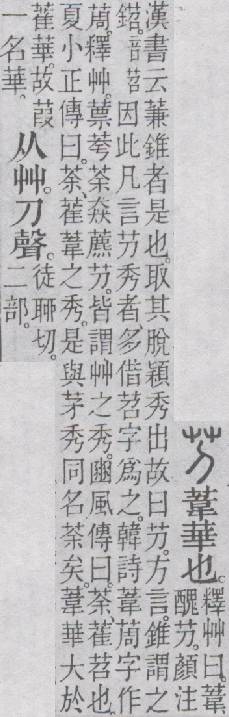 芀葦華也。釋艸曰。葦
醜芀。顏注
漢書云蒹錐者是也。取其脫穎秀出故曰芀。方言。錐謂之
鍣。音苕因此凡言芀秀者、多借苕字爲之。韓詩葦䓟字作
䓟。釋艸。蔈荂荼猋藨芀。皆謂艸之秀。豳風傳曰。荼萑苕也。
夏小正傳曰。荼、萑葦之秀。是與茅秀同名荼矣。葦華大於
萑華。故葭
一名華。
从艸。刀聲。徒聊切。
二部。